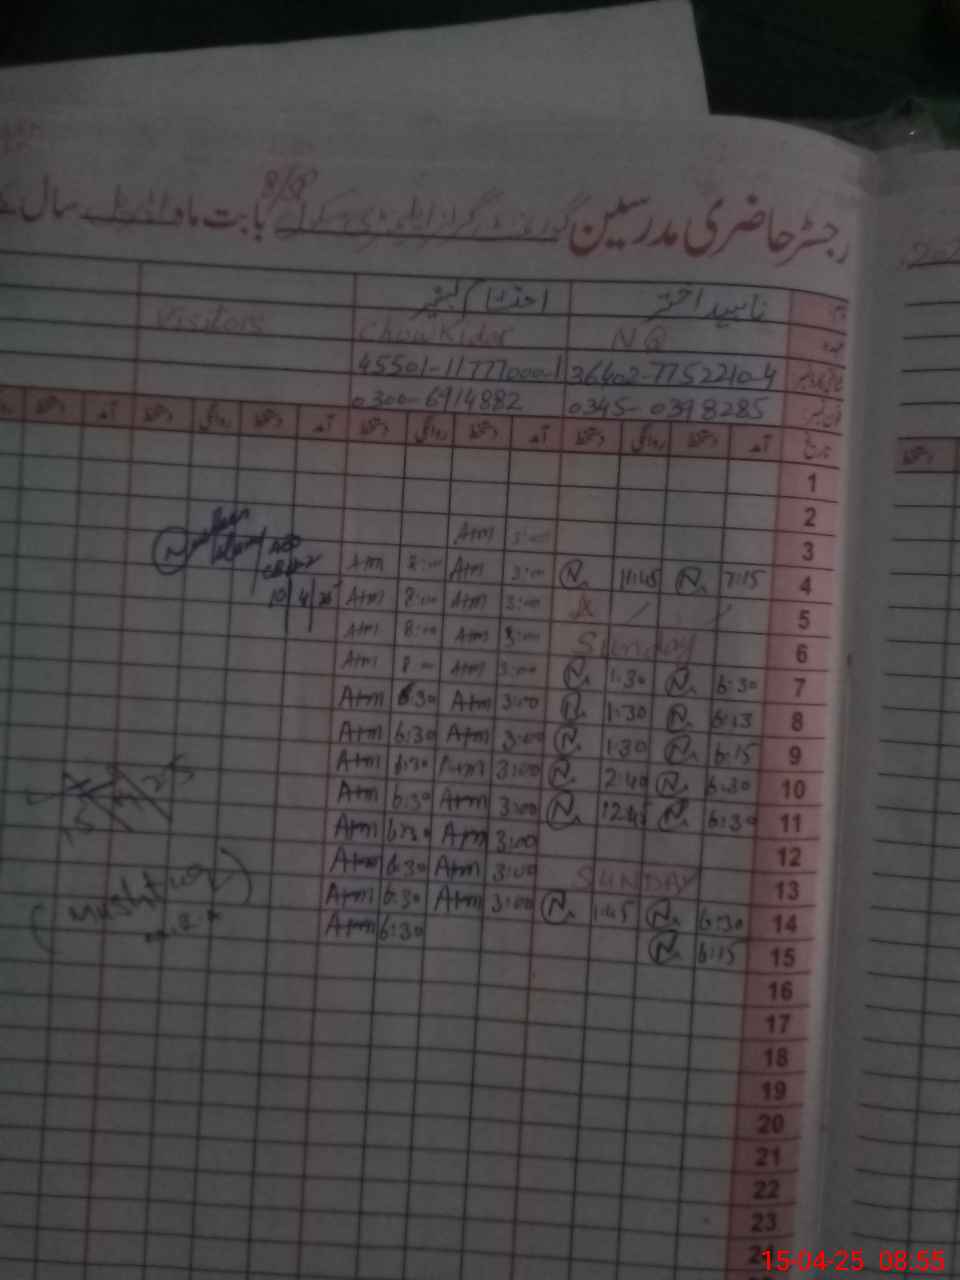 رجسٹر حاضری مدرسین گورنمنٹ گرلز ایلیمنٹری سکول 8/BP بابت ماہ اپریل سال
ناہید اختر احتشام کبیر
NQ Chowkidar Visitors
36402-7752210-4 45501-11777000-1
0345-0398285 0300-6914882
تاریخ آمد دستخط روانگی دستخط آمد دستخط روانگی دستخط آمد دستخط روانگی دستخط
1
2
3 Atm 3:00
4 7:15 N. 11:45 N. 3:00 Atm 8:00 Atm
5 3:00 Atm 8:00 Atm 10 4 25
6 Sunday 3:00 Atm 8:00 Atm
7 6:30 N. 1:30 N. 3:00 Atm 8:00 Atm
8 6:13 N. 1:30 N. 3:00 Atm 6:30 Atm
9 6:15 N. 1:30 N. 3:00 Atm 6:30 Atm
10 6:30 N. 2:40 N. 3:00 Atm 6:30 Atm
11 6:30 N. 12:45 N. 3:00 Atm 6:30 Atm
12 3:00 Atm 6:30 Atm
13 SUNDAY 3:00 Atm 6:30 Atm
14 6:30 N. 1:45 N. 3:00 Atm 6:30 Atm
15 6:15 N. 6:30 Atm
16
17
18
19
20
21
22
23
24
15-04-25 08:55